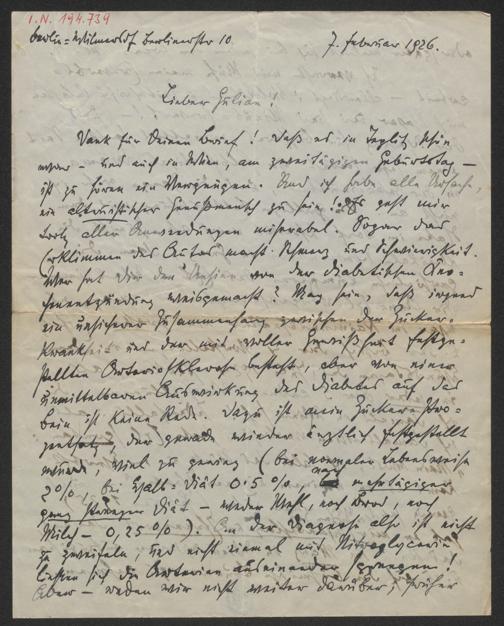 I.N. 194.739
Berlin=Wilmersdorf Berlinerstr 10. 7. Februar 1926.
Lieber Julian!
Dank für Deinen Brief! Daß es in Teglitz schön
war — und auch in Wien, am zweitägigen Geburtstag —
ist zu hören ein Vergnügen. Und ich habe alle Ursache,
ein altruistischer Genußmensch zu sein! Es geht mir
trotz aller Anwendungen miserabel. Sogar das
Erklimmen des Autos macht Schmerz und Schwierigkeit.
Wer hat dir den Unsinn von der diabetischen
weisgemacht? Mag sein, daß irgend
ein unsicherer Zusammenhang zwischen der Zucker-
krankheit und der mit voller Gewißheit festge-
stellten Arteriosklerose besteht, aber von einer
unmittelbaren Auswirkung des Diabetes auf das
Bein ist keine Rede. Dazu ist mein Zucker-Pro-
zentsatz, der gerade wieder ärztlich festgestellt
wurde, viel zu gering (bei normaler Lebensweise
2%, bei Halb-Diät 0.5%, nach mehrtägiger
ganz strenger Diät — weder Mehl, noch Brod, noch
Milch — 0,25%). An der Diagnose also ist nicht
zu zweifeln; und nicht einmal mit Nitroglycerin
ließen sich die Arterien auseinander sprengen!
Aber — reden wir nicht weiter darüber; früher